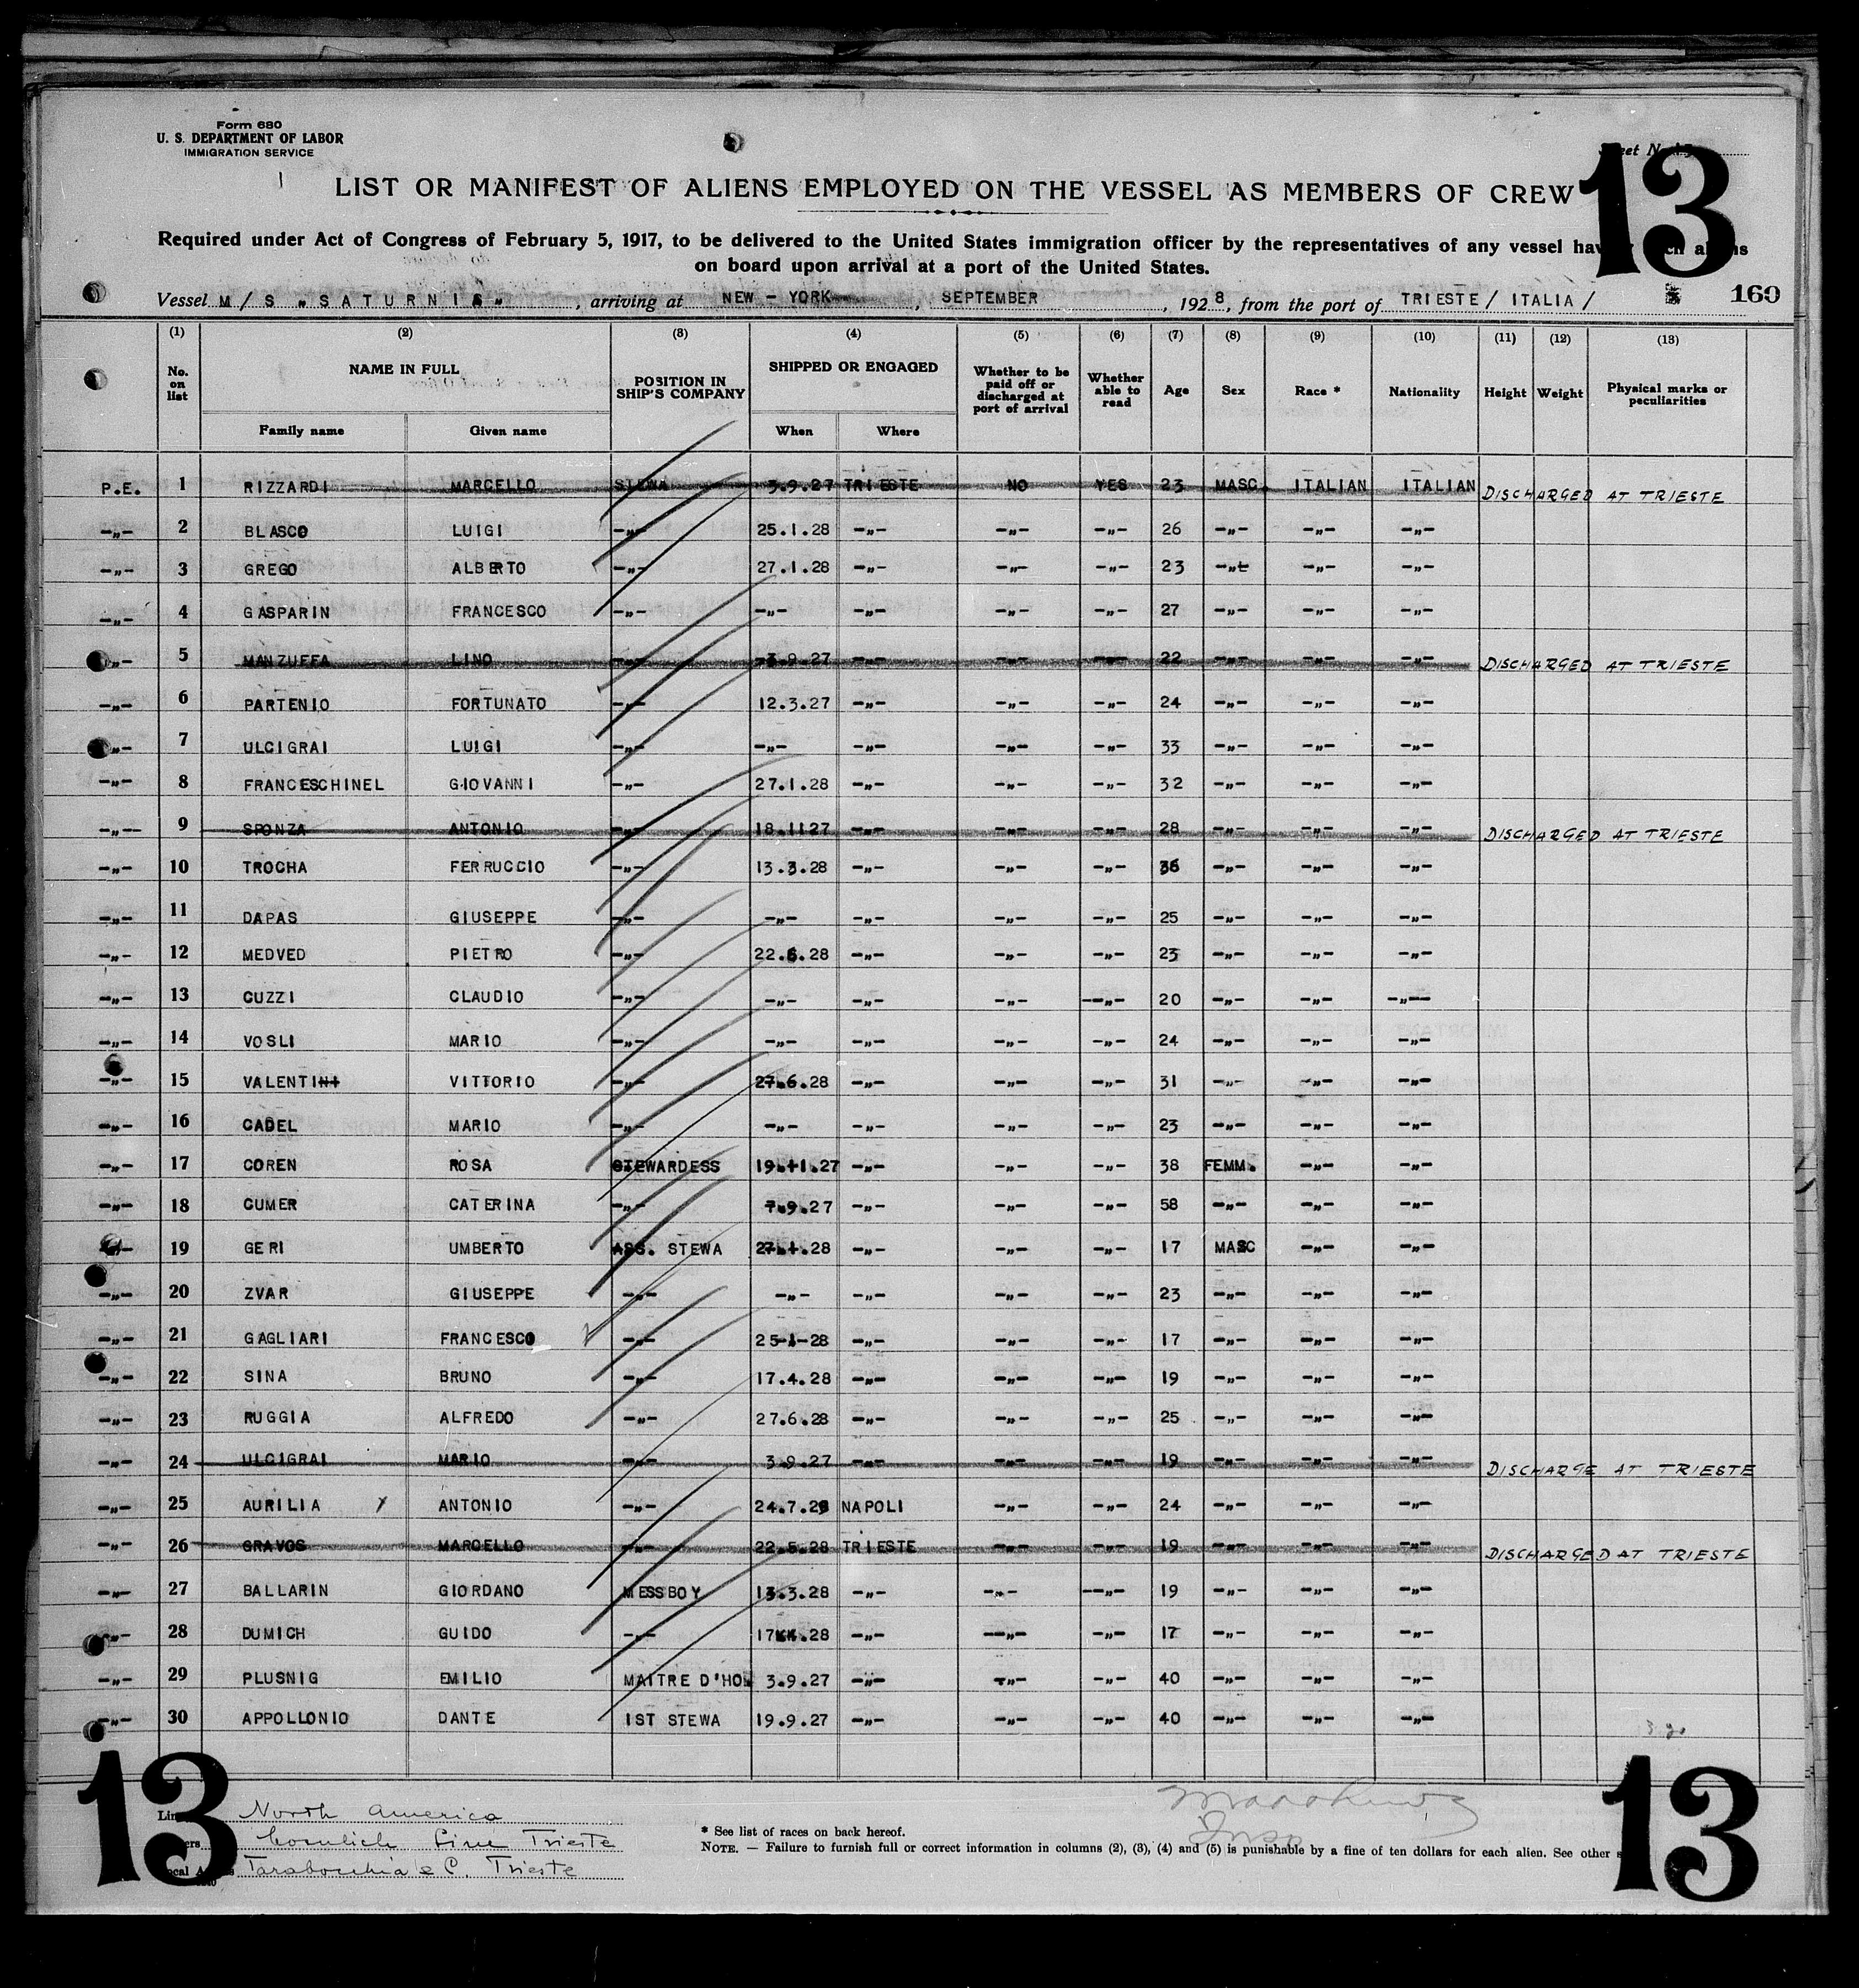 Form 680
U. S. DEPARTMENT OF LABOR
IMMIGRATION SERVICE
13
LIST OR MANIFEST OF ALIENS EMPLOYED ON THE VESSEL AS MEMBERS OF CREW
Required under Act of Congress of February 5, 1917, to be delivered to the United States immigration officer by the representatives of any vessel
on board upon arrival at a port of the United States.
Vessel M/S „SATURNIA„, arriving at NEW-YORK, SEPTEMBER, 1928, from the port of TRIESTE/ ITALIA/ 160
(1) (2) (3) (4) (5) (6) (7) (8) (9) (10) (11) (12) (13)
No. on list NAME IN FULL POSITION IN SHIP'S COMPANY SHIPPED OR ENGAGED Whether to be paid off or discharged at port of arrival Whether able to read Age Sex Race * Nationality Height Weight Physical marks or peculiarities
Family name Given name When Where
P.E. 1 RIZZARDI MARCELLO STEWA 3.9.27 TRIESTE NO YES 23 MASC. ITALIAN ITALIAN DISCHARGED AT TRIESTE
-„- 2 BLASCO LUIGI -„- 25.1.28 -„- -„- -„- 26 -„- -„- -„-
-„- 3 GREGO ALBERTO -„- 27.1.28 -„- -„- -„- 23 -„- -„- -„-
-„- 4 GASPARIN FRANCESCO -„- -„- -„- -„- -„- 27 -„- -„- -„-
-„- 5 MANZUFFA LINO -„- 3.9.27 -„- -„- -„- 22 -„- -„- -„- DISCHARGED AT TRIESTE
-„- 6 PARTENIO FORTUNATO -„- 12.3.27 -„- -„- -„- 24 -„- -„- -„-
-„- 7 ULCIGRAI LUIGI -„- -„- -„- -„- -„- 33 -„- -„- -„-
-„- 8 FRANCESCHINEL GIOVANNI -„- 27.1.28 -„- -„- -„- 32 -„- -„- -„-
-„- 9 SPONZA ANTONIO -„- 18.1127 -„- -„- -„- 28 -„- -„- -„- DISCHARGED AT TRIESTE
-„- 10 TROCHA FERRUCCIO -„- 13.3.28 -„- -„- -„- 36 -„- -„- -„-
-„- 11 DAPAS GIUSEPPE -„- -„- -„- -„- -„- 25 -„- -„- -„-
-„- 12 MEDVED PIETRO -„- 22.6.28 -„- -„- -„- 23 -„- -„- -„-
-„- 13 CUZZI CLAUDIO -„- -„- -„- -„- -„- 20 -„- -„- -„-
-„- 14 VOSLI MARIO -„- -„- -„- -„- -„- 24 -„- -„- -„-
-„- 15 VALENTINI VITTORIO -„- 27.6.28 -„- -„- -„- 31 -„- -„- -„-
-„- 16 CADEL MARIO -„- -„- -„- -„- -„- 23 -„- -„- -„-
-„- 17 COREN ROSA STEWARDESS 19.11.27 -„- -„- -„- 38 FEMM. -„- -„-
-„- 18 CUMER CATERINA -„- 7.9.27 -„- -„- -„- 58 -„- -„- -„-
-„- 19 GERI UMBERTO ASS. STEWA 27.1.28 -„- -„- -„- 17 MASC -„- -„-
-„- 20 ZVAR GIUSEPPE -„- -„- -„- -„- -„- 23 -„- -„- -„-
-„- 21 GAGLIARI FRANCESCO -„- 25-1-28 -„- -„- -„- 17 -„- -„- -„-
-„- 22 SINA BRUNO -„- 17.4.28 -„- -„- -„- 19 -„- -„- -„-
-„- 23 RUGGIA ALFREDO -„- 27.6.28 -„- -„- -„- 25 -„- -„- -„-
-„- 24 ULCIGRAI MARIO -„- 3.9.27 -„- -„- -„- 19 -„- -„- -„- DISCHARGE AT TRIESTE
-„- 25 AURILIA ANTONIO -„- 24.7.28 NAPOLI -„- -„- 24 -„- -„- -„-
-„- 26 GRAVOS MARCELLO -„- 22.5.28 TRIESTE -„- -„- 19 -„- -„- -„- DISCHARGED AT TRIESTE
-„- 27 BALLARIN GIORDANO MESSBOY 13.3.28 -„- -„- -„- 19 -„- -„- -„-
-„- 28 DUMICH GUIDO -„- 17.4.28 -„- -„- -„- 17 -„- -„- -„-
-„- 29 PLUSNIG EMILIO MAITRE D'HO 3.9.27 -„- -„- -„- 40 -„- -„- -„-
-„- 30 APPOLLONIO DANTE 1ST STEWA 19.9.27 -„- -„- -„- 40 -„- -„- -„-
13
North America
Cosulich Line Trieste
Tarabocchia & C. Trieste
* See list of races on back hereof.
NOTE. — Failure to furnish full or correct information in columns (2), (3), (4) and (5) is punishable by a fine of ten dollars for each alien. See other
13